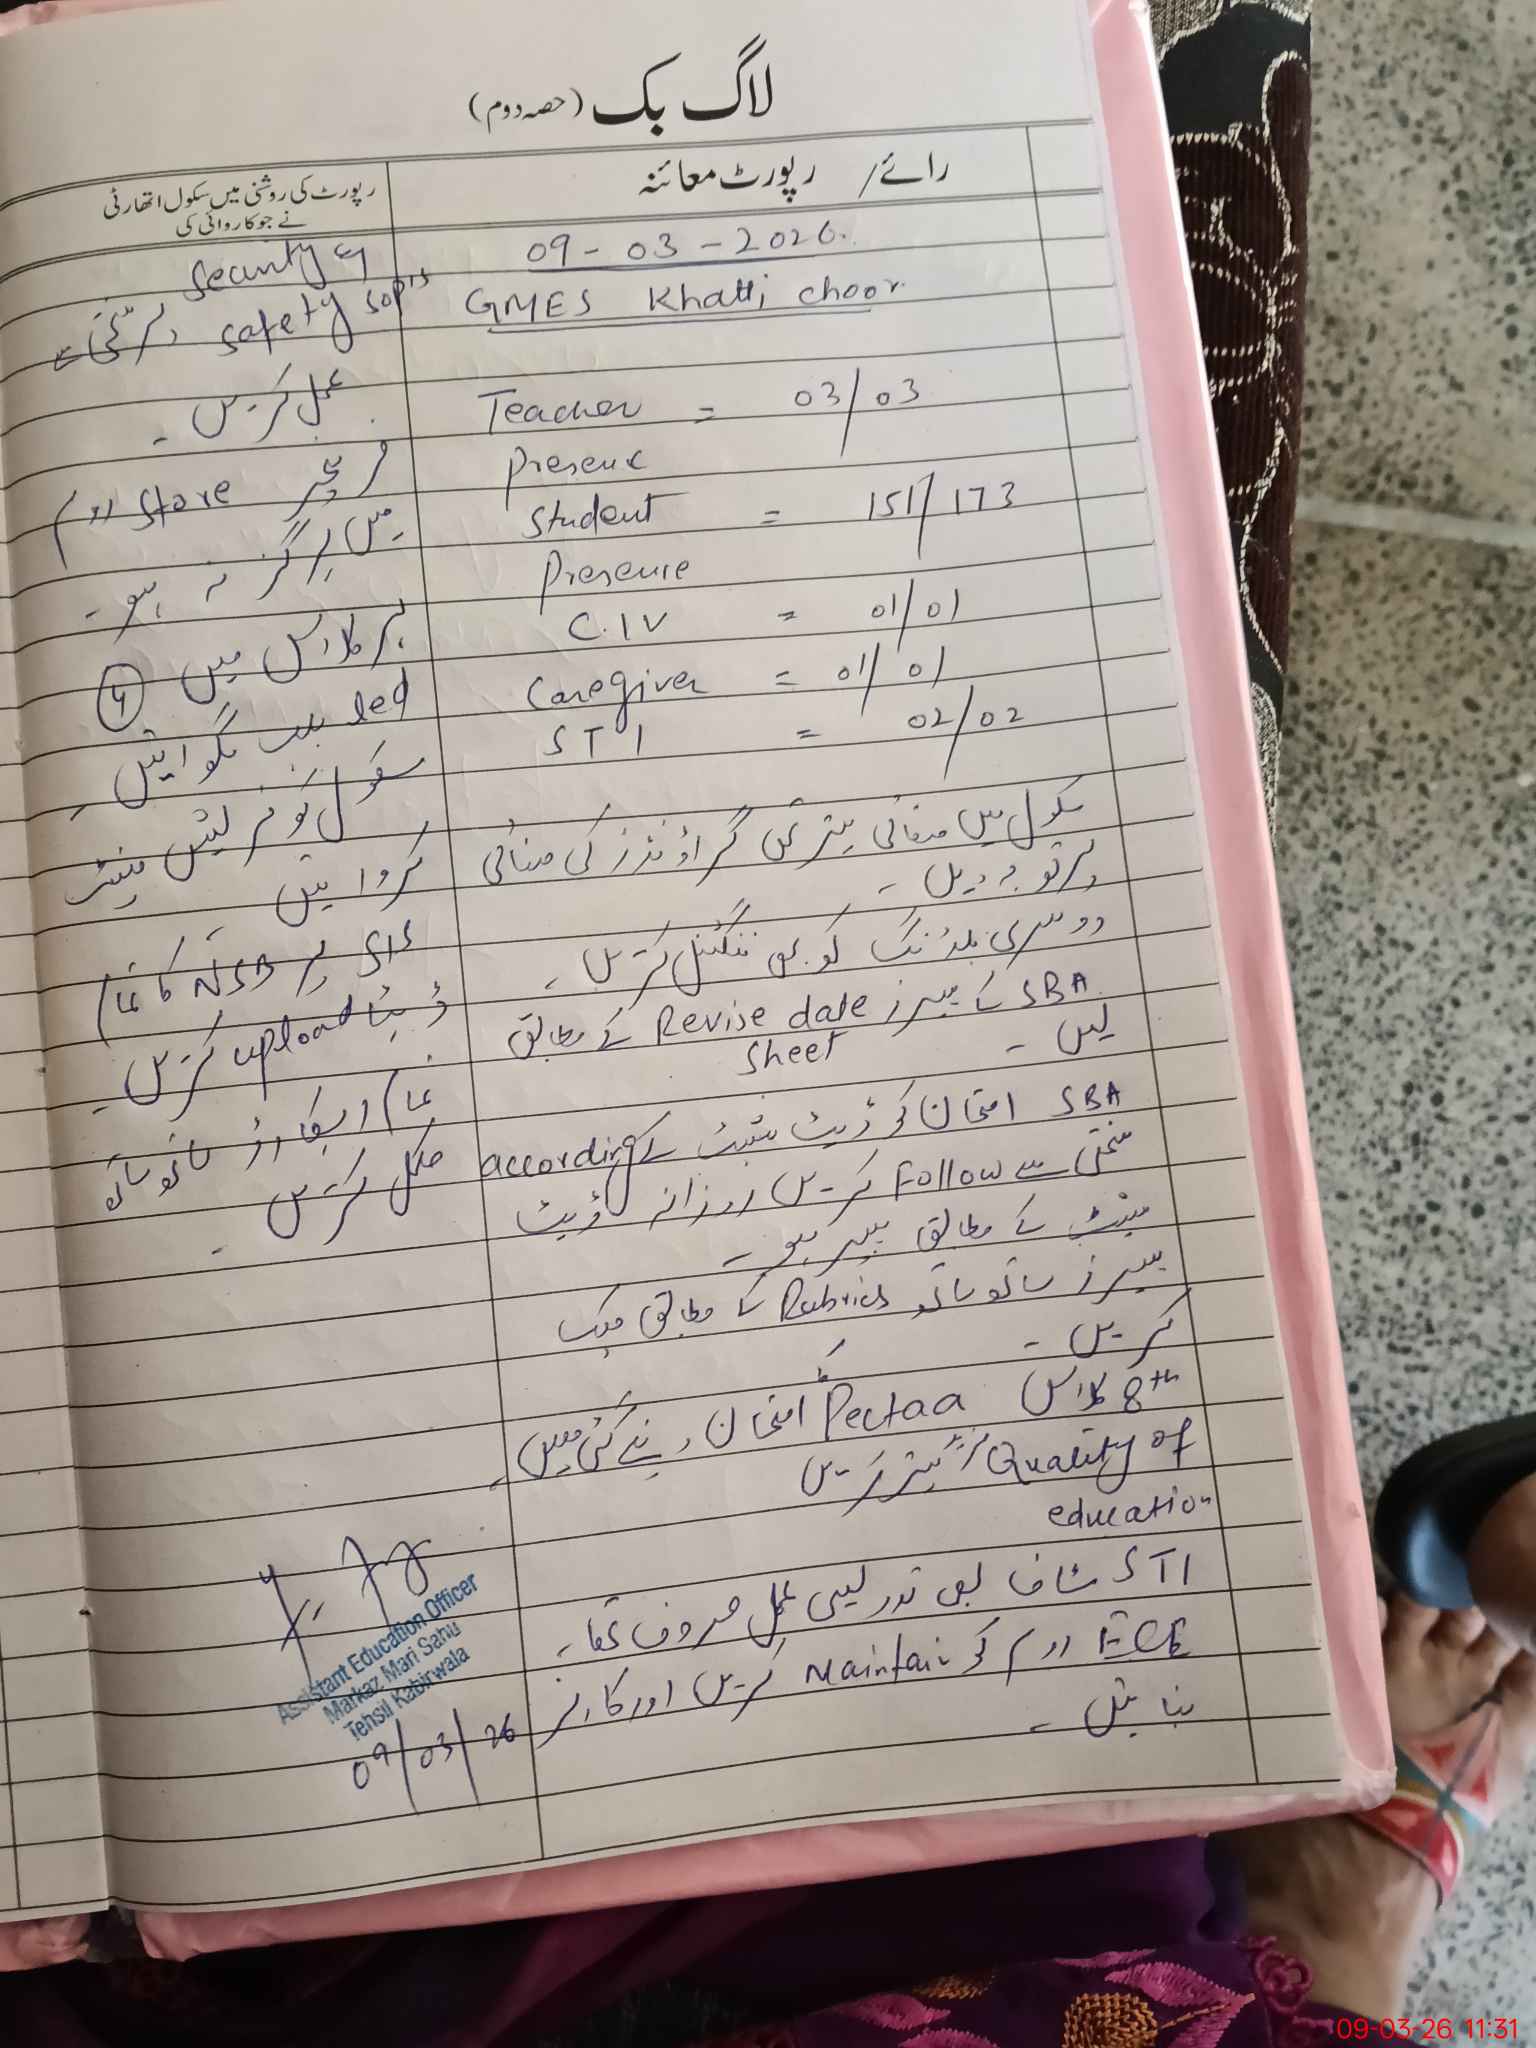 لاگ بک (حصہ دوم)
رائے / رپورٹ معائنہ
09-03-2026.
GMES Khatti choor.
Teacher = 03/03
Present
Student = 151/173
Presence
C.IV = 01/01
Caregiver = 01/01
STI = 02/02
سکول میں صفائی بہتر تھی گراؤنڈز کی صفائی
پر توجہ دیں۔
دوسری بلڈنگ کو بھی فنکشنل کریں۔
SBA کے پیپرز Revise date کے مطابق
sheet لیں۔
SBA امتحان کو ڈیٹ شیٹ کے according
سختی سے Follow کریں روزانہ ڈیٹ
شیٹ کے مطابق پیپر ہو۔
پیپرز ساتھ ساتھ Rubrics کے مطابق چیک
کریں۔
8th کلاس Pectaa کے امتحان دینے گئی ہیں۔
Quality of مزید بہتر کریں
education
STI سٹاف بھی تدریسی عمل مصروف تھا۔
ECE روم کو Maintain کریں اور کارنر
بنائیں۔
رپورٹ کی روشنی میں سکول اتھارٹی
نے جو کاروائی کی
Security &
safety sop's پر سختی سے
عمل کریں۔
فرنیچر store روم
میں ہرگز نہ ہو۔
ہر کلاس میں 4
led بلب لگوائیں۔
سکول کو فرنیش پینٹ
کروائیں
SIS پر NSB کا تمام
ڈیٹا upload کریں۔
تمام ریکارڈ ساتھ ساتھ
مکمل کریں۔
Assistant Education Officer
Markaz Mari Sahu
Tehsil Kabirwala
09/03/26
09-03-26 11:31